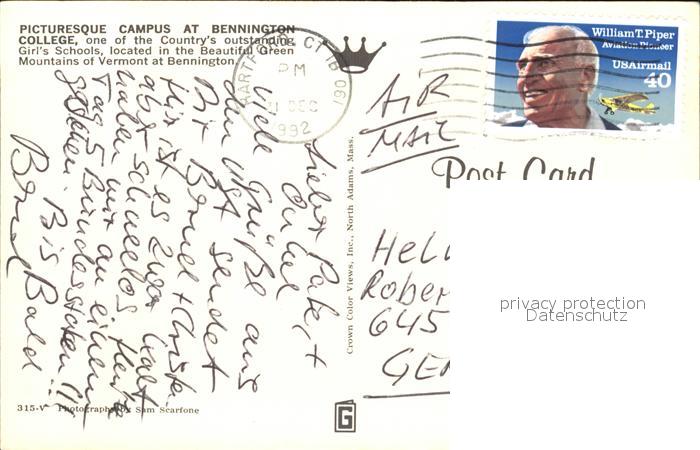 PICTURESQUE CAMPUS AT BENNINGTON
COLLEGE, one of the Country's outstanding
Girl's Schools, located in the Beautiful Green
Mountains of Vermont at Bennington.
HARTFORD CT 061
PM
31 DEC
1992
William T. Piper
Aviation Pioneer
USAirmail
40
AIR
MAIL
Post Card
Lieber Pate, +
Onkel
Viele Grüße aus
den USA sendet
Dir Bernd + Christa
Hier ist es zwar kalt
aber schneelos. Heute
haben wir an einem
Tag 5 Bundesstaaten
gesehen. Bis Bald
Bernd
Crown Color Views, Inc., North Adams, Mass.
HEL
Rober
645
GE
privacy protection
Datenschutz
315-V Photography by Sam Scarfone
G